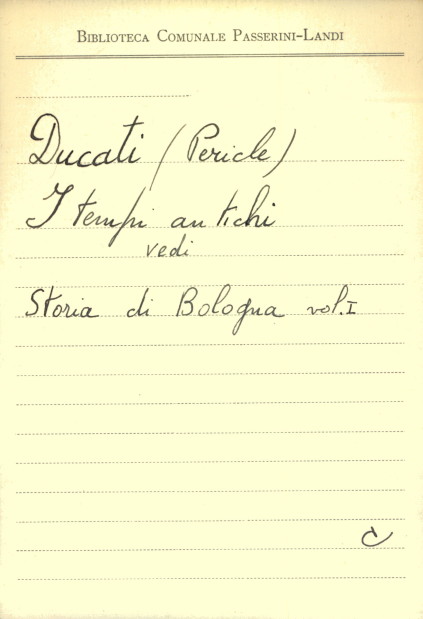 BIBLIOTECA COMUNALE PASSERINI-LANDI
Ducati (Pericle)
I tempi antichi
vedi
Storia di Bologna vol. I
C